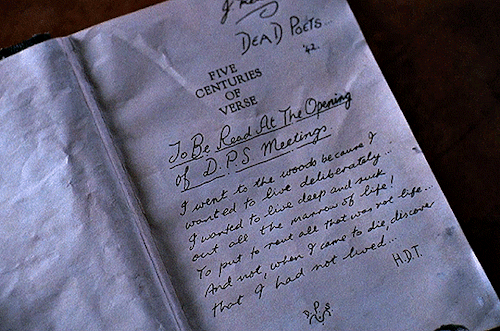 DEAD POETS...
'42.
FIVE
CENTURIES
OF
VERSE
To Be Read At The Opening
of D.P.S. Meetings
I went to the woods because I
wanted to live deliberately...
I wanted to live deep and suck
out all the marrow of life!
To put to rout all that was not life...
And not, when I came to die, discover
that I had not lived...
H.D.T.